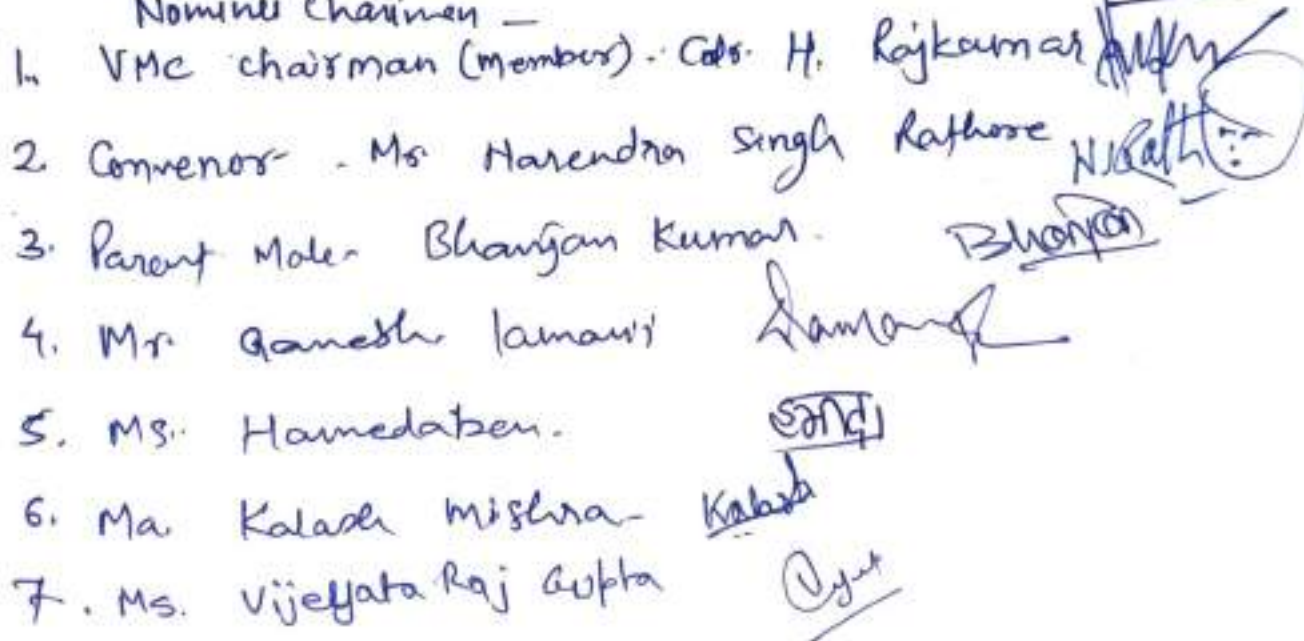 Nominee Chairman -
1. VMC chairman (member). Cdr. H. Rajkumar
2. Convenor - Mr Narendra Singh Rathore NSRath
3. Parent Male - Bhanjan Kumar. Bhanjan
4. Mr Ganesh lamani
5. Ms. Hamedaben.
6. Ma. Kalash mishra - Kalash
7. Ms. Vijeyata Raj Gupta